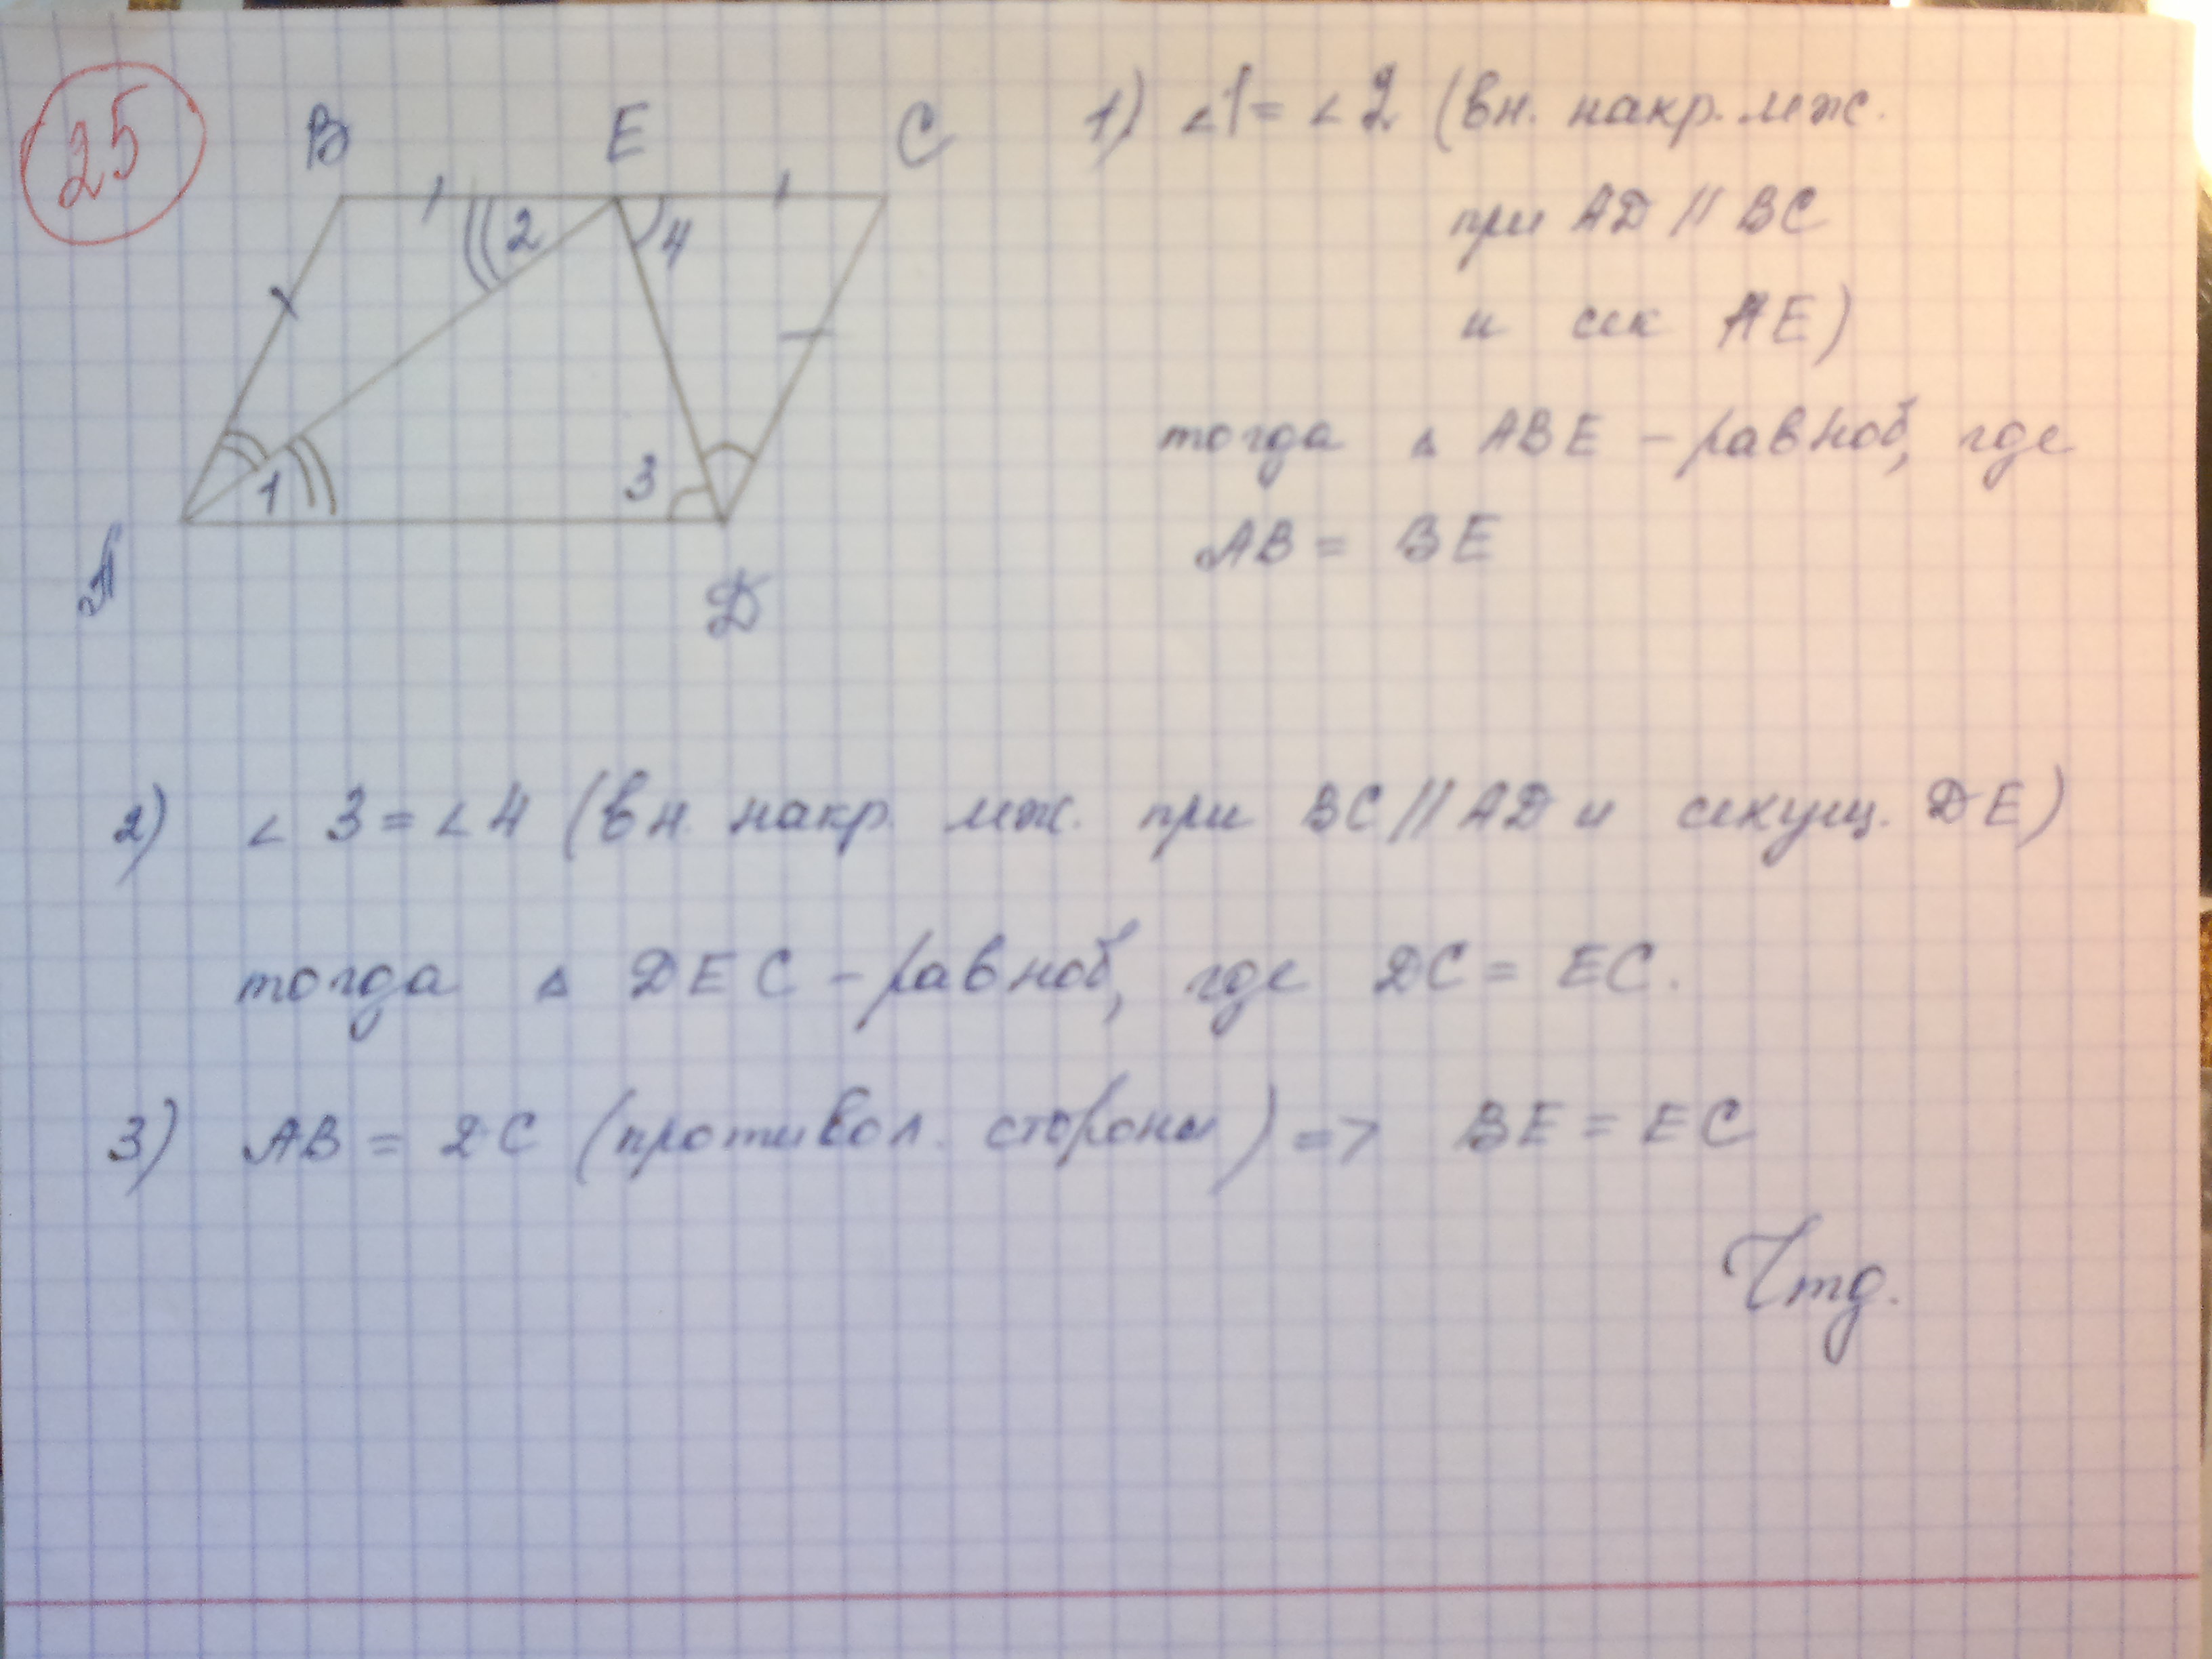 25
B E C
2 4
1 3
A D
1) ∠1 = ∠2 (вн. накр. леж.
при AD // BC
и сек AE)
тогда △ ABE - равноб, где
AB = BE
2) ∠ 3 = ∠ 4 (вн. накр. леж. при BC // AD и секущ. DE)
тогда △ DEC - равноб, где DC = EC.
3) AB = DC (противол. стороны) => BE = EC
Чтд.